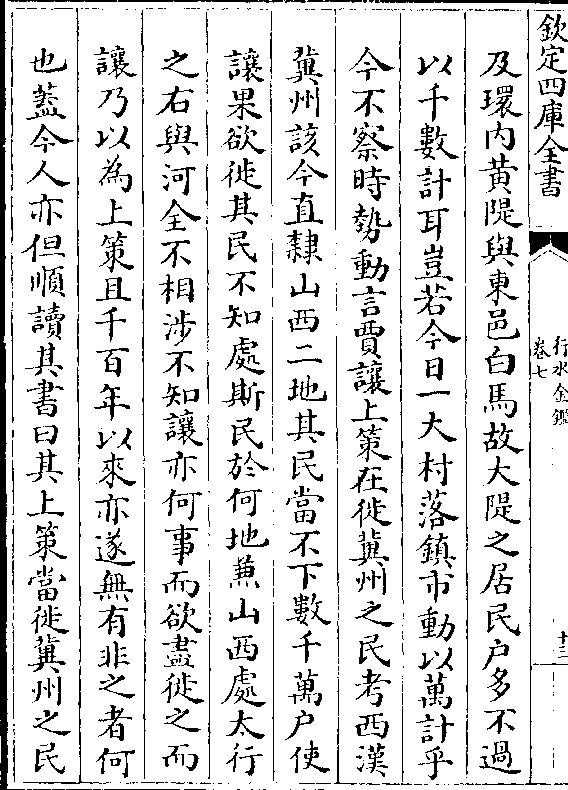 欽定四庫全書
行水金鑑
卷七
十三
及環内黄隄與東邑白馬故大隄之居民户多不過
以千數計耳豈若今日一大村落鎮市動以萬計乎
今不察時勢動言賈讓上策在徙冀州之民考西漢
冀州該今直隸山西二地其民當不下數千萬户使
讓果欲徙其民不知處斯民於何地蕪山西處太行
之右與河全不相涉不知讓亦何事而欲盡徙之而
讓乃以為上策且千百年以來亦遂無有非之者何
也葢今人亦但順讀其書曰其上策當徙冀州之民